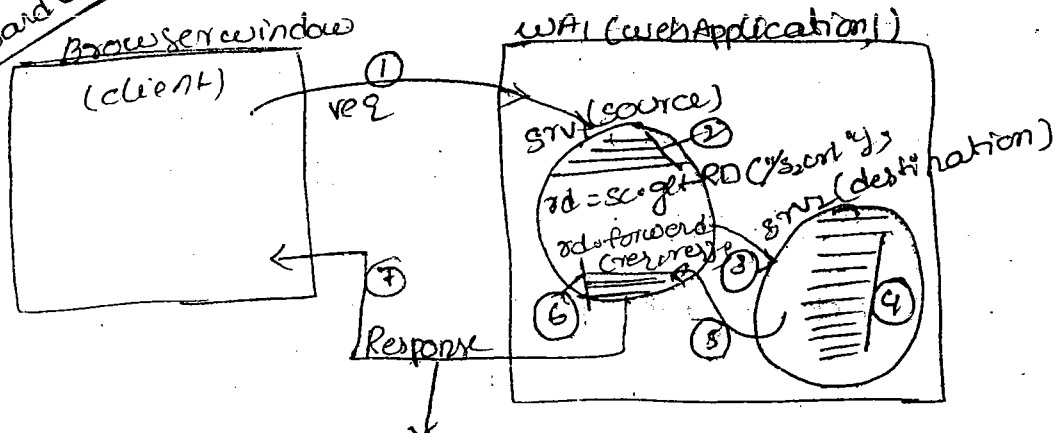 Browser window
(client)
①
req
WA1 (webApplication1)
srv1 (source)
②
rd = sc.getRD("/s2url");
rd.forward
(req,res);
srv2 (destination)
③
④
⑤
⑥
⑦
Response